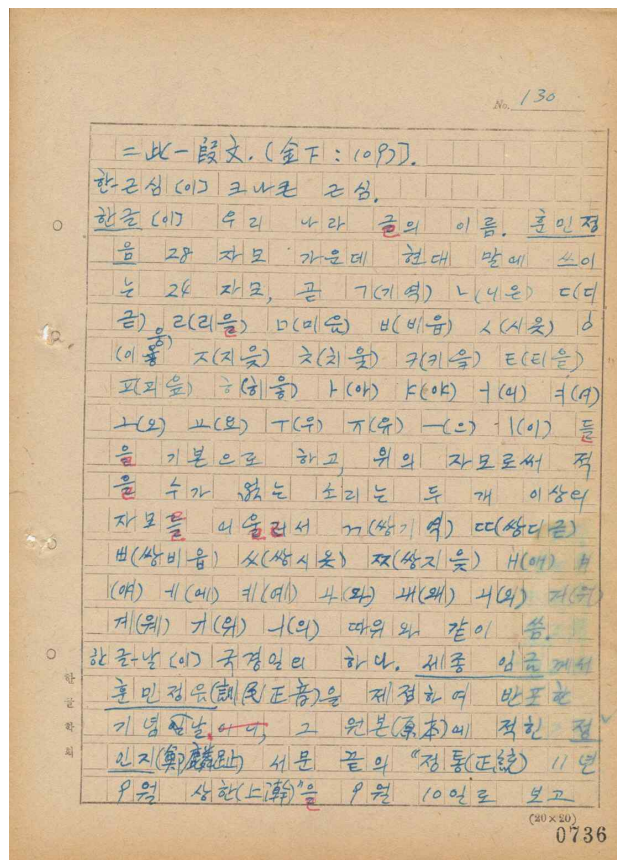 No. 130
=此一段文. (金下: 109)].
한-근심 (이) 크나큰 근심.
한글 (이) 우리 나라 글의 이름. 훈민정
음 28 자모 가운데 현대 말에 쓰이
는 24 자모, 곧 ㄱ(기역) ㄴ(니은) ㄷ(디
귿) ㄹ(리을) ㅁ(미음) ㅂ(비읍) ㅅ(시옷) ㅇ
(이응) ㅈ(지읒) ㅊ(치읓) ㅋ(키읔) ㅌ(티읕)
ㅍ(피읖) ㅎ(히읗) ㅏ(아) ㅑ(야) ㅓ(어) ㅕ(여)
ㅗ(오) ㅛ(요) ㅜ(우) ㅠ(유) ㅡ(으) ㅣ(이) 들
을 기본으로 하고, 위의 자모로써 적
을 수가 없는 소리는 두 개 이상의
자모를 어울러서 ㄲ(쌍기역) ㄸ(쌍디귿)
ㅃ(쌍비읍) ㅆ(쌍시옷) ㅉ(쌍지읒) ㅐ(애) ㅒ
(얘) ㅔ(에) ㅖ(예) ㅘ(와) ㅙ(왜) ㅚ(외) ㅝ(워)
ㅞ(웨) ㅟ(위) ㅢ(의) 따위와 같이 씀.
한글-날 (이) 국경일의 하나. 세종 임금께서
훈민정음(訓民正音)을 제정하여 반포한
기념 날, 그 원본(原本)에 적힌 정
인지(鄭麟趾) 서문 끝의 "정통(正統) 11년
9월 상한(上澣)"을 9월 10일로 보고
한글학회
(20×20)
0736